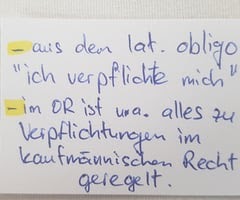 - aus dem lat. obligo
"ich verpflichte mich"
- im OR ist u.a. alles zu
Verpflichtungen im
kaufmännischen Recht
geregelt.